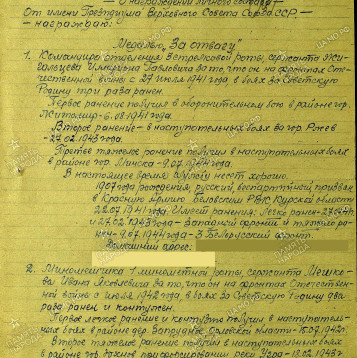 О награждении личного состава
От имени Президиума Верховного Совета Союза ССР —
— награждаю:
Медалью "За отвагу"
1. Командира отделения стрелковой роты, сержанта
за то, что он на фронтах Оте-
чественной войны с 27 июля 1941 года в боях за Советскую
Родину три раза ранен.
Первое ранение получил в оборонительном бою в районе гор.
Житомир - 6.08.1941 года.
Второе ранение - в наступательных боях за гор. Ржев
- 27.02.1943 года.
Третье тяжелое ранение получил в наступательных боях
в районе гор. Минска - 9.07.1944 года.
В настоящее время службу несет хорошо.
1907 года рождения, русский, беспартийный, призван
в Красную Армию Беловским РВК Курской области
22.07.1941 года. Имеет ранения: Легко ранен -
и 27.02.1943 года - Западный фронт и тяжело ра-
нен - 9.07.1944 года - 3 Белорусский фронт.
Домашний адрес:
2. Минометчика 1 минометной роты, сержанта
Ивана Яковлевича за то, что он на фронтах Отечествен-
ной войны с июля 1942 года, в боях за Советскую Родину два
раза ранен и контужен.
Первое легкое ранение и контузию получил в наступатель-
ных боях в районе дер. Орловской области - 15.07.1942 г.
Второе тяжелое ранение получил в наступательных боях
в районе при форсировании реки 1943 г.